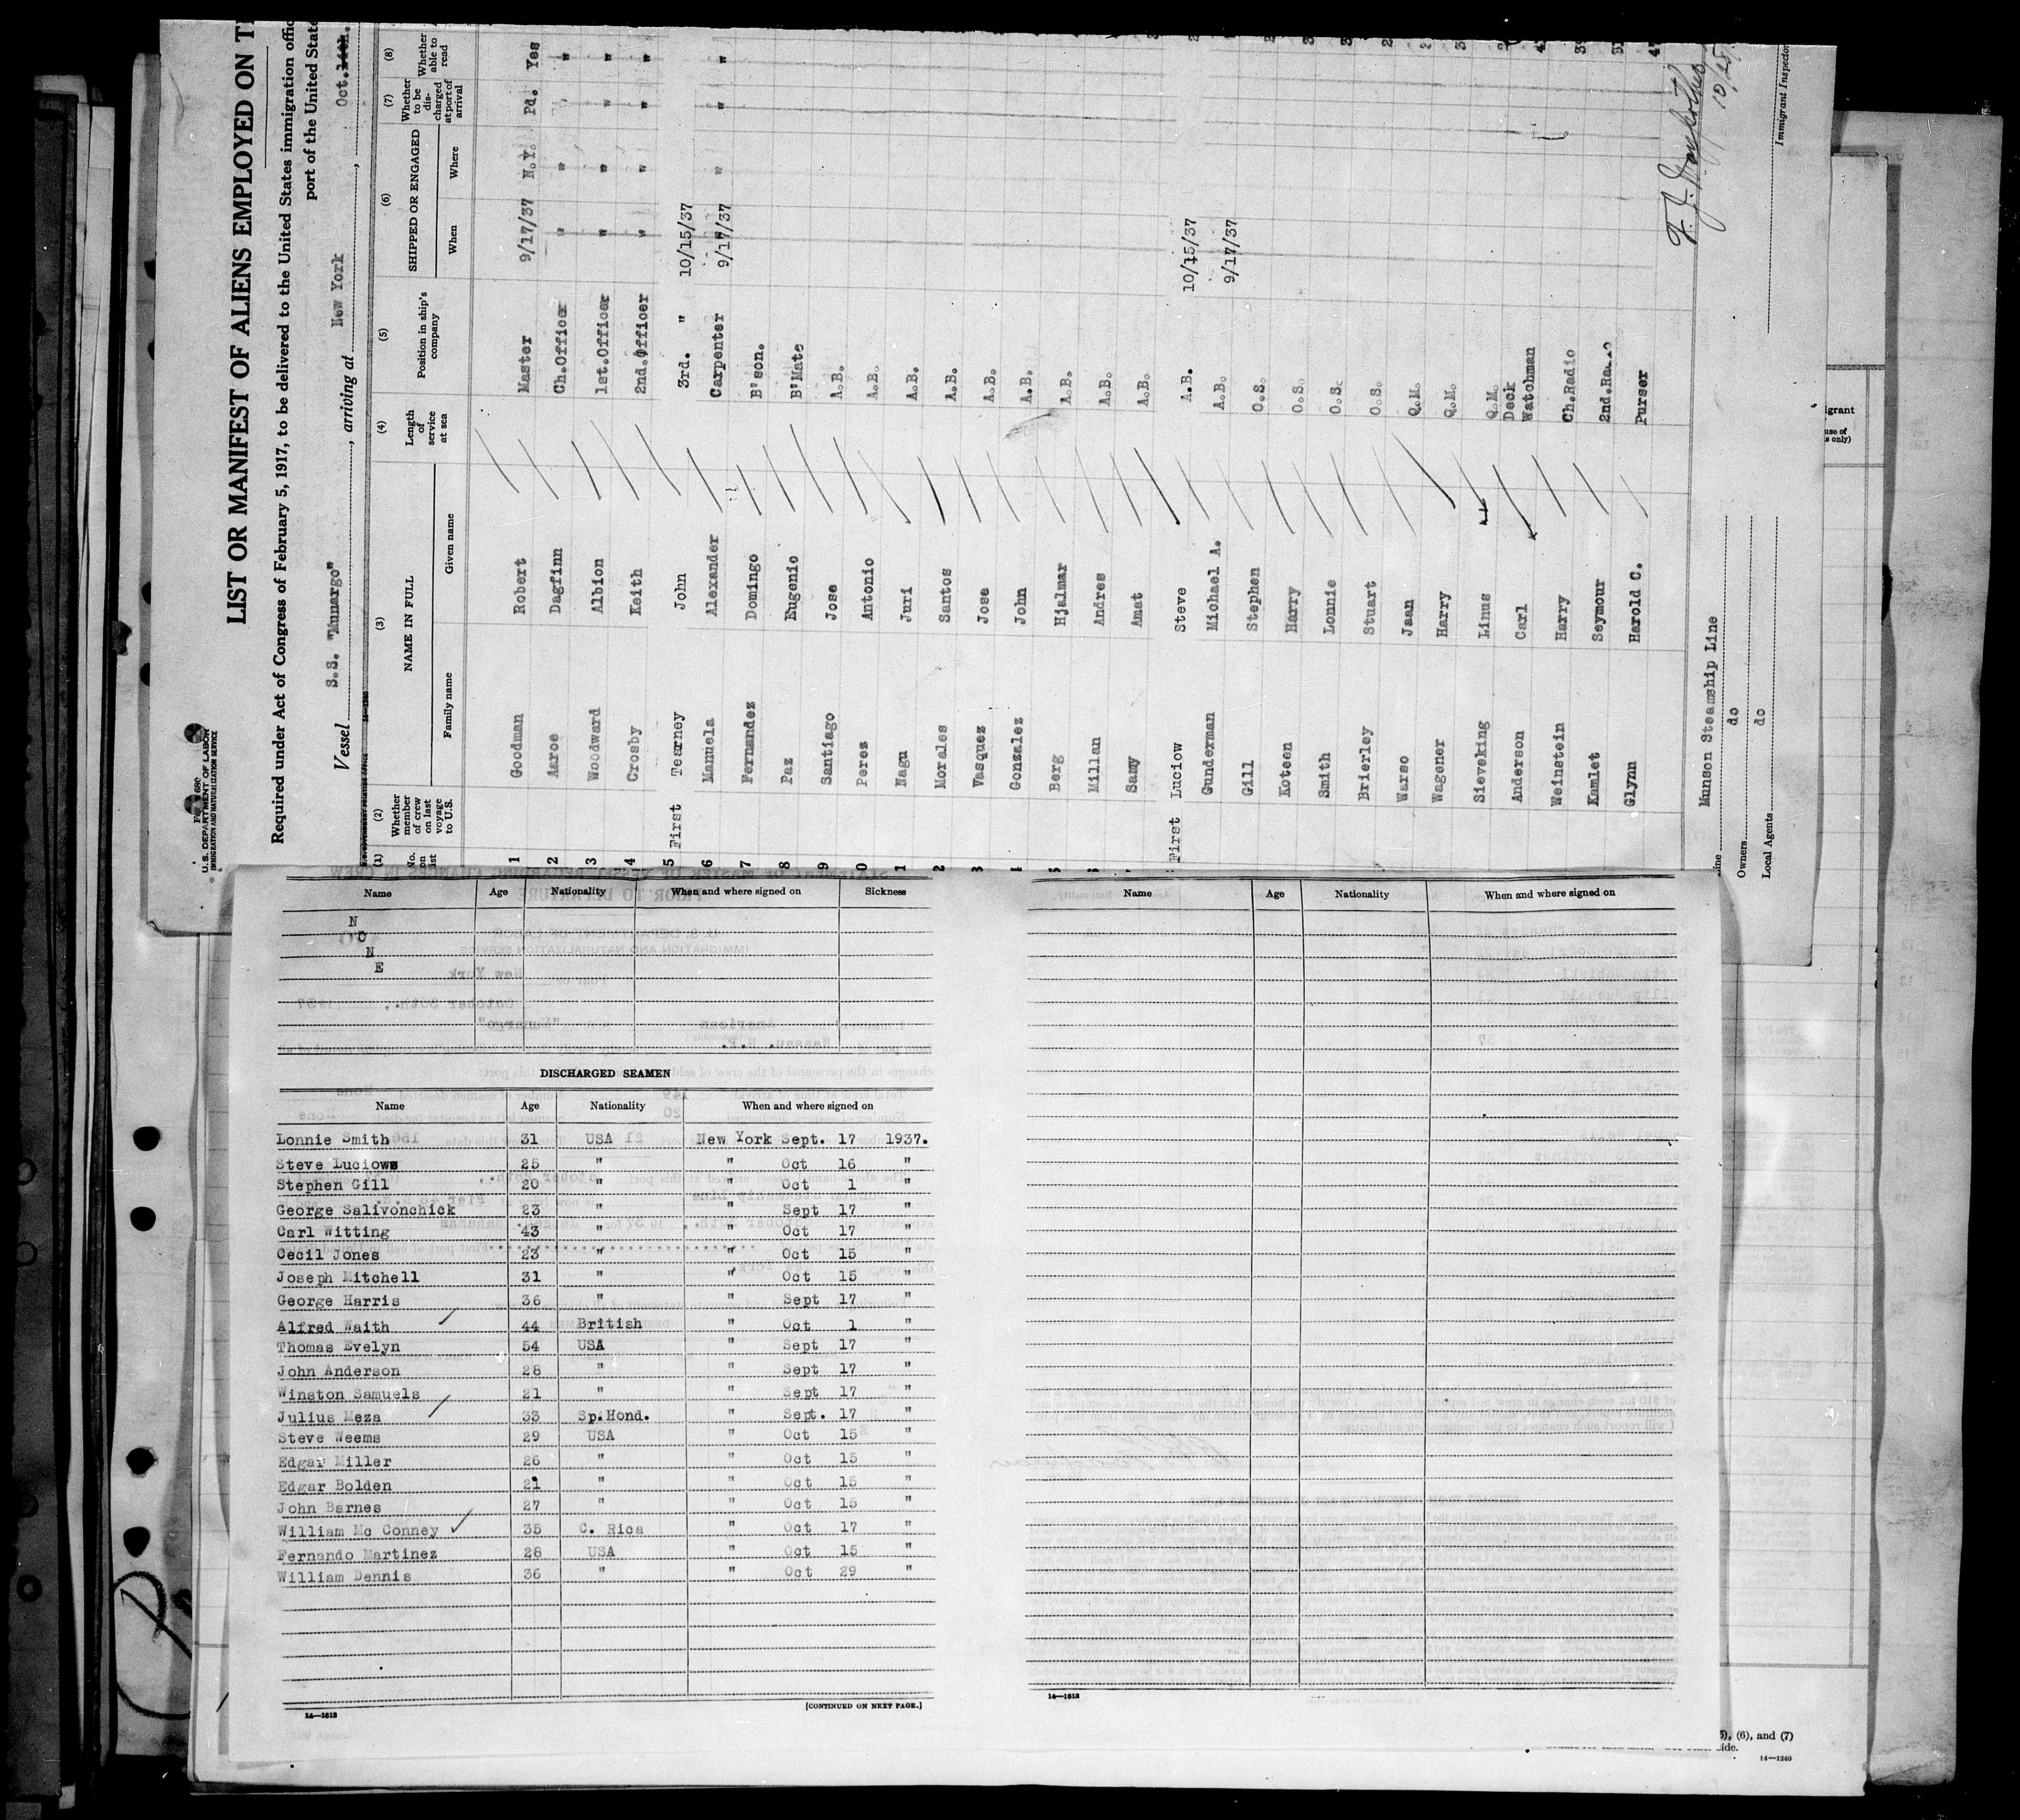 LIST OR MANIFEST OF ALIENS EMPLOYED ON T
Required under Act of Congress of February 5, 1917, to be delivered to the United States immigration offic
port of the United State
U.S. DEPARTMENT OF LABOR
IMMIGRATION AND NATURALIZATION SERVICE
Vessel S.S. "Munargo", arriving at New York, Oct.14th.
(1) (2) (3) (4) (5) (6) (7) (8)
No. on list
Whether member of crew on last voyage to U.S.
NAME IN FULL
Family name Given name
Length of service at sea
Position in ship's company
SHIPPED OR ENGAGED
When Where
Whether to be discharged at port of arrival
Whether able to read
1 Goodman Robert Master 9/17/37 N.Y. Pd. Yes
2 Aaroe Dagfinn Ch.Officer " " " "
3 Woodward Albion 1st.Officer " " " "
4 Crosby Keith 2nd.Officer " " " "
5 First Tearney John 3rd. " 10/15/37
6 Manuela Alexander Carpenter 9/17/37 " " "
7 Fernandez Domingo B'son.
8 Paz Eugenio B'Mate
9 Santiago Jose A.B.
0 Perez Antonio A.B.
1 Nagu Juri A.B.
2 Morales Santos A.B.
3 Vasquez Jose A.B.
4 Gonzalez John A.B.
5 Berg Hjalmar A.B.
6 Millan Andres A.B.
Samy Amat A.B.
First Luciow Steve A.B. 10/15/37
Gunderman Michael A. A.B. 9/17/37
Gill Stephen O.S.
Koteen Harry O.S.
Smith Lonnie O.S.
Brierley Stuart O.S.
Warso Jaan Q.M.
Wagener Harry Q.M.
Sieveking Linus Q.M.
Anderson Carl Deck Watchman
Weinstein Harry Ch.Radio
Kamlet Seymour 2nd.Ra
Glynn Harold C. Purser
Line Munson Steamship Line
Owners do
Local Agents do
F. J.
10/25
Immigrant Inspector
Name Age Nationality When and where signed on Sickness
N
O
N
E
DISCHARGED SEAMEN
Name Age Nationality When and where signed on
Lonnie Smith 31 USA New York Sept. 17 1937.
Steve Luciow 25 " " Oct 16 "
Stephen Gill 20 " " Oct 1 "
George Salivonchick 23 " " Sept 17 "
Carl Witting 43 " " Oct 17 "
Cecil Jones 23 " " Oct 15 "
Joseph Mitchell 31 " " Oct 15 "
George Harris 36 " " Sept 17 "
Alfred Waith 44 British " Oct 1 "
Thomas Evelyn 54 USA " Sept 17 "
John Anderson 28 " " Sept 17 "
Winston Samuels 21 " " Sept 17 "
Julius Meza 33 Sp.Hond. " Sept. 17 "
Steve Weems 29 USA " Oct 15 "
Edgar Miller 26 " " Oct 15 "
Edgar Bolden 21 " " Oct 15 "
John Barnes 27 " " Oct 15 "
William Mc Conney 35 C. Rica " Oct 17 "
Fernando Martinez 28 USA " Oct 15 "
William Dennis 36 " " Oct 29 "
[CONTINUED ON NEXT PAGE.]
14—1613
Name Age Nationality When and where signed on
14—1613
5), (6), and (7)
14—1240